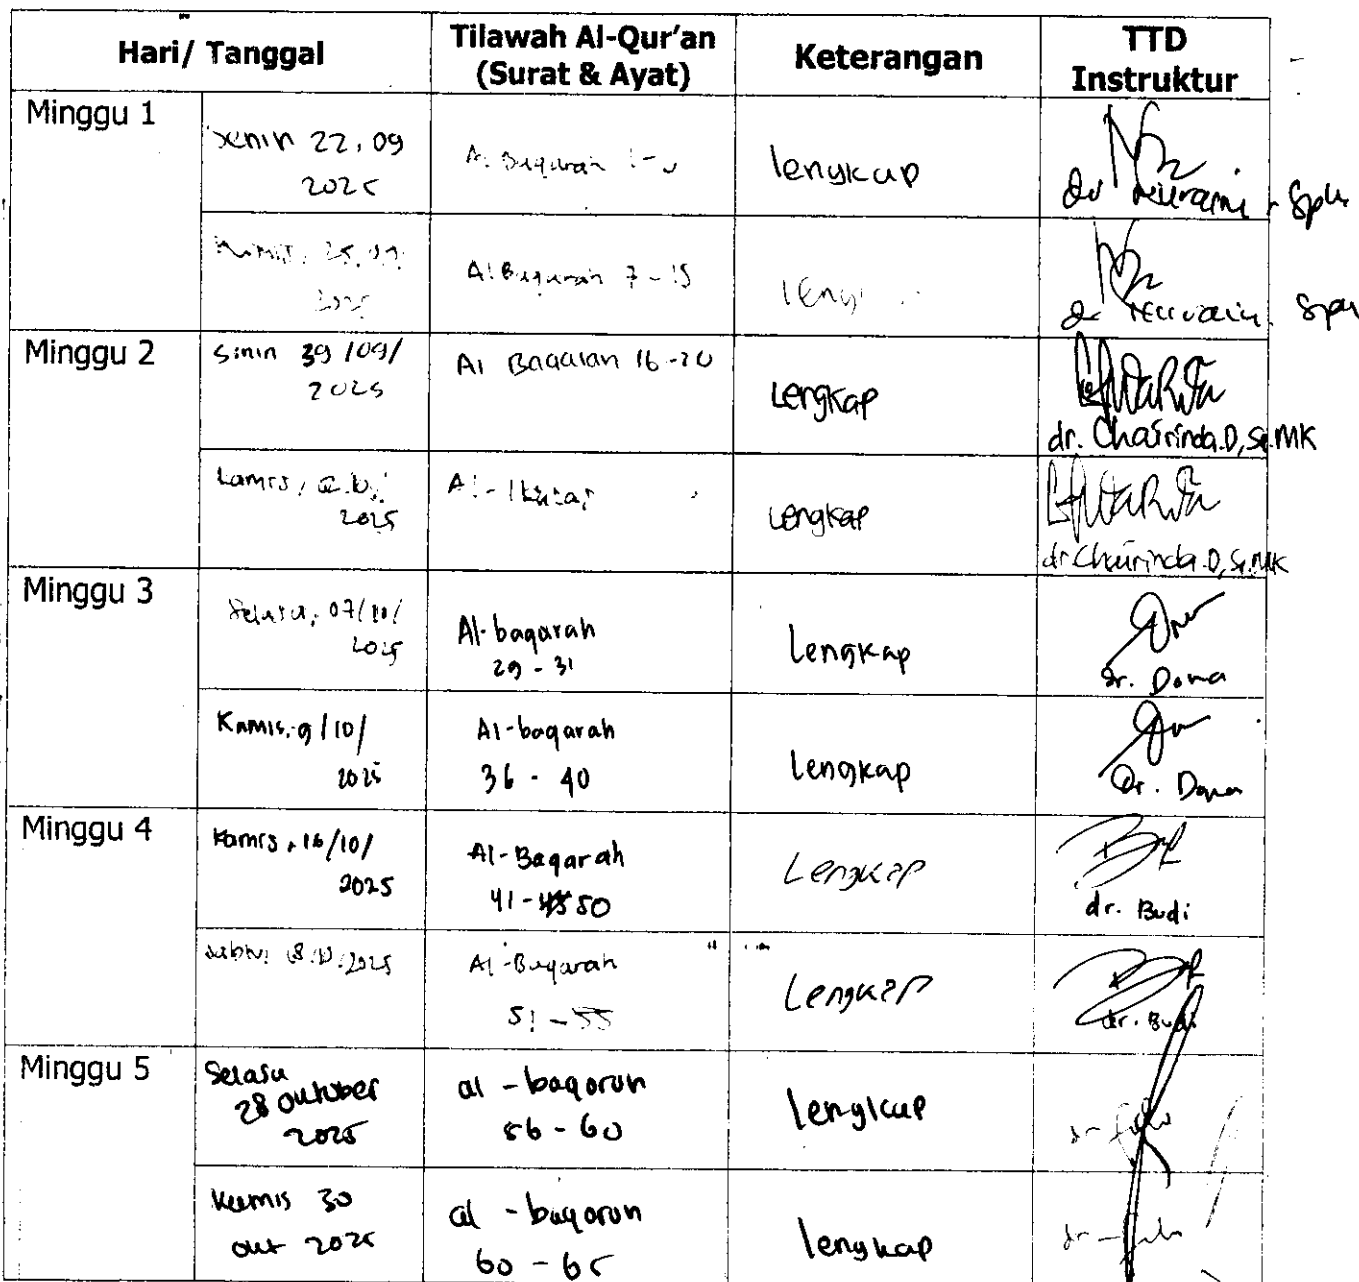 Hari/ Tanggal
Tilawah Al-Qur'an
(Surat & Ayat)
Keterangan
TTD
Instruktur
Minggu 1
Senin 22.09
2025
Al Baqarah
lengkap
dr Nuraini
Al Baqarah 7-15
2025
dr
Minggu 2
Senin 39/09/
2025
Al Baqarah 16-20
Lengkap
dr. Chairinda.D, Sp.MK
Kamis,
2025
Lengkap
dr Chairinda.D, Sp.MK
Minggu 3
Selasa, 07/10/
2025
Al-baqarah
29 - 31
Lengkap
dr. Dona
Kamis, 9/10/
2025
Al-baqarah
36 - 40
Lengkap
Dr. Dona
Minggu 4
Kamis, 16/10/
2025
Al-Baqarah
41 - 50
Lengkap
dr. Budi
Sabtu 18.10.2025
Al-Baqarah
51 - 55
Lengkap
dr. Budi
Minggu 5
Selasa
28 Oktober
2025
al - baqorun
56 - 60
lengkap
dr
Kamis 30
Okt 2025
al - baqorun
60 - 65
lengkap
dr